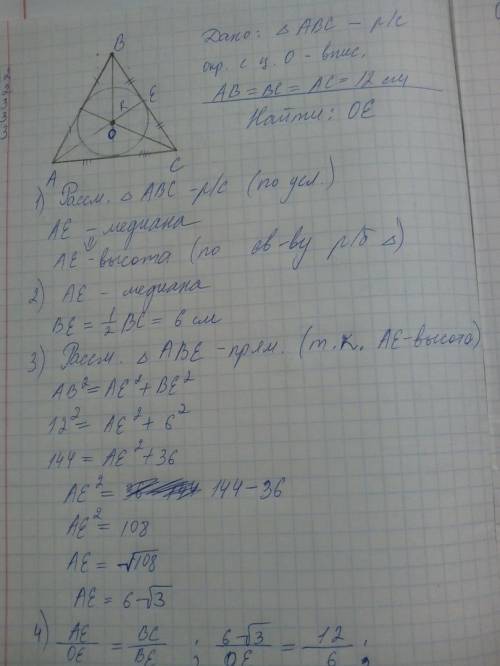 B
E
R
O
A
C
Дано: △ ABC – р/с
окр. с ц. O – впис.
AB = BC = AC = 12 см
Найти: OE
1) Рассм. △ ABC – р/с (по усл.)
AE – медиана
AE – высота (по св-ву р/б △)
2) AE – медиана
BE = 1/2 BC = 6 см
3) Рассм. △ ABE – прям. (т.к. AE – высота)
AB² = AE² + BE²
12² = AE² + 6²
144 = AE² + 36
AE² = 144 – 36
AE² = 108
AE = √108
AE = 6√3
4) AE/OE = BC/BE ; 6√3/OE = 12/6 ;